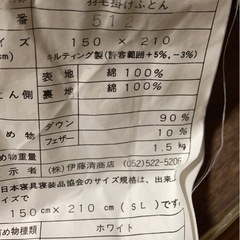 羽毛掛けふとん
番 512
イズ 150 × 210
cm) キルティング製(許容範囲+5%,-3%)
表地 綿100%
とん側 裏地 綿100%
め物 ダウン 90%
フェザー 10%
め物重量 1.5kg
示者 (株)伊藤清商店 (052)522-5206
日本寝具寝装品協会のサイズ規格は、出来
イズで
150cm×210cm(SL)です
め物種類 ホワイト